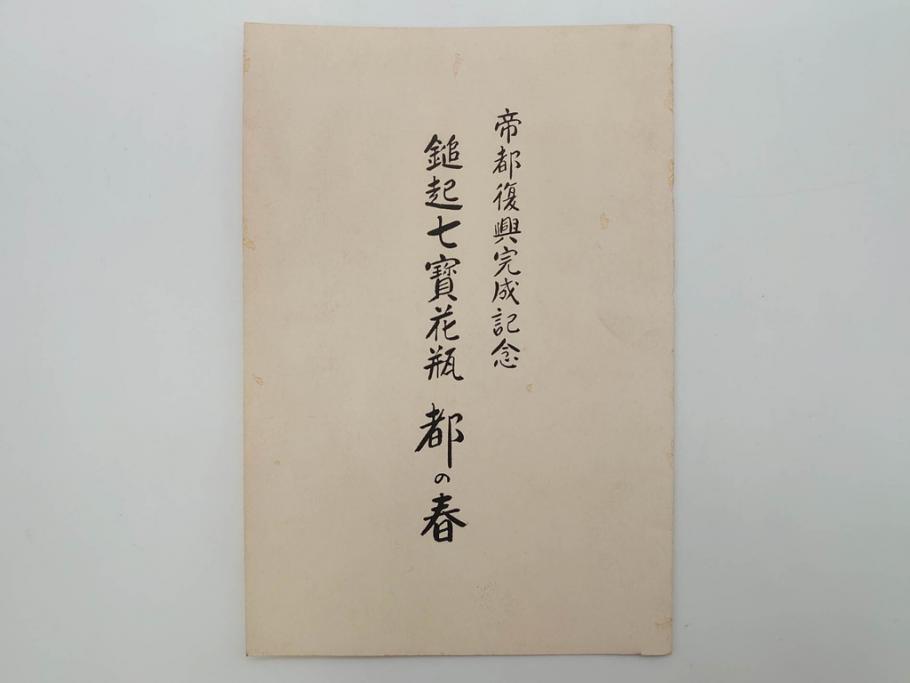 帝都復興完成記念
鎚起七寶花瓶 都の春